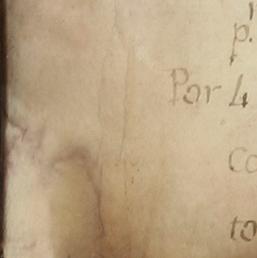 p.
Par 4
co
to